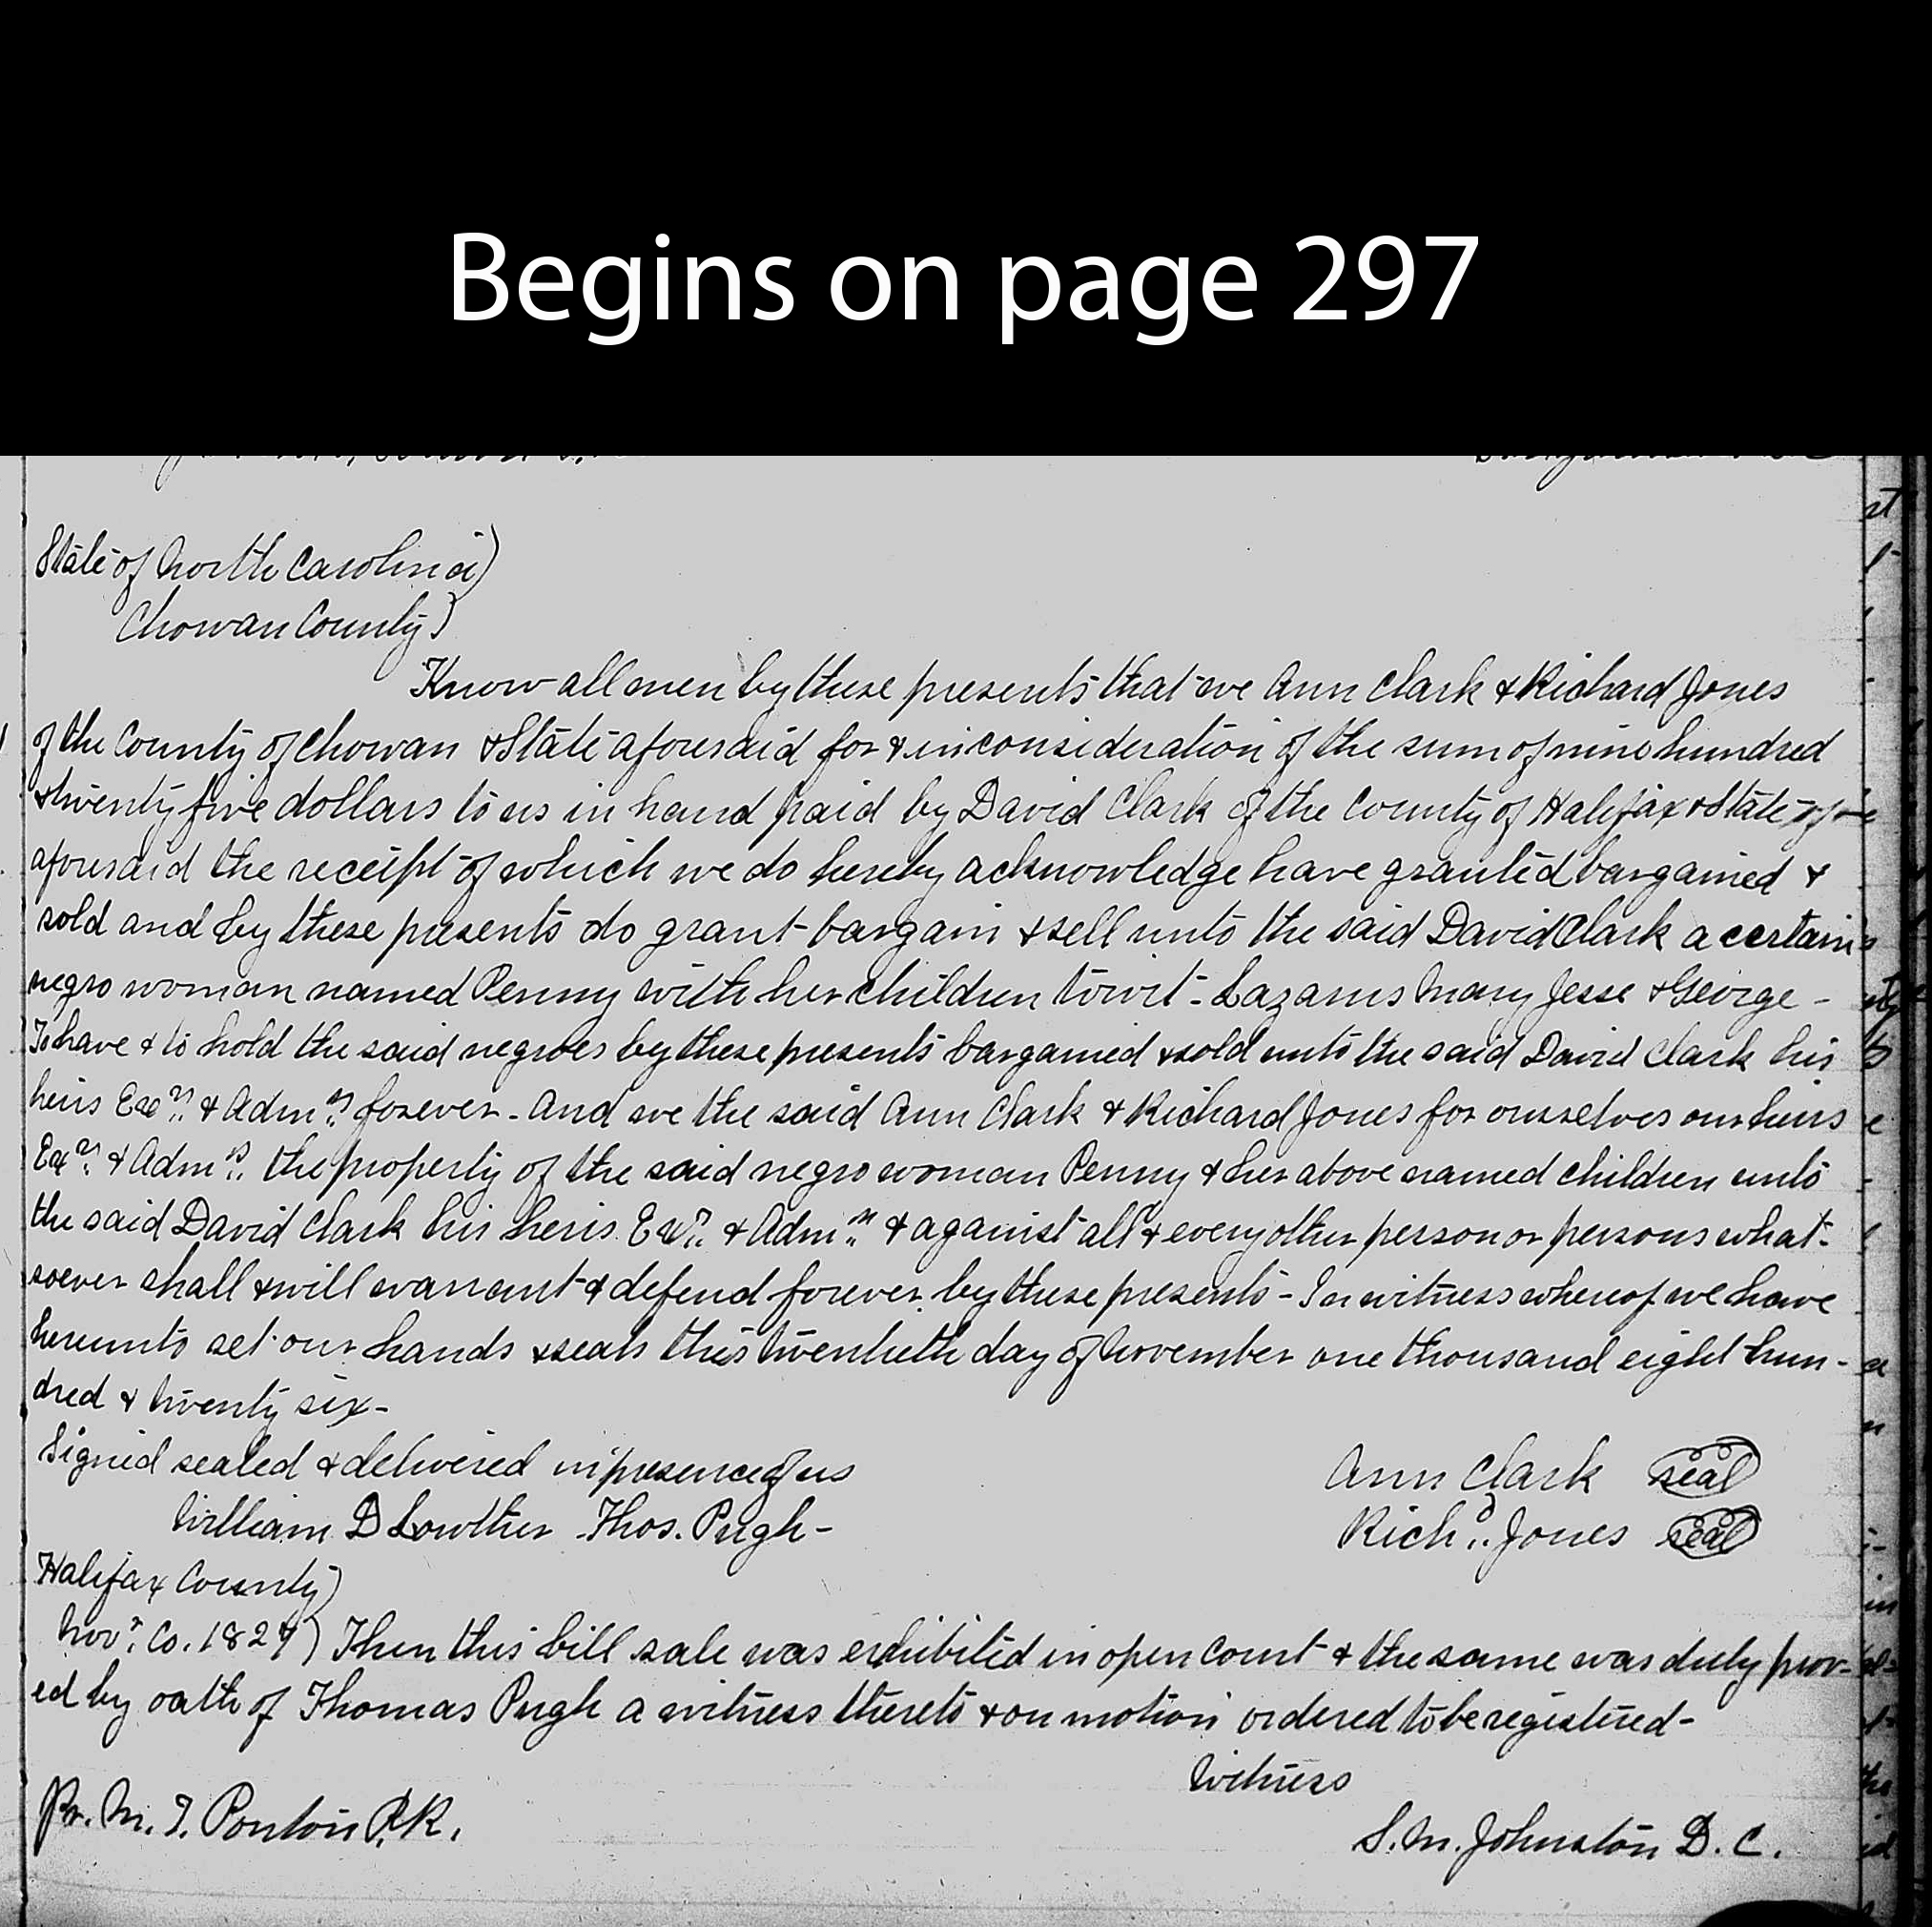 Begins on page 297
State of North Carolina)
Chowan County)
Know all men by these presents that we Ann Clark & Richard Jones
of the County of Chowan & State aforesaid for & in consideration of the sum of nine hundred
& twenty five dollars to us in hand paid by David Clark of the County of Halifax & State of
aforesaid the receipt of which we do hereby acknowledge have granted bargained &
sold and by these presents do grant bargain & sell unto the said David Clark a certain
negro woman named Penny with her children towit - Lazarus Mary Jesse & George -
To have & to hold the said negroes by these presents bargained & sold unto the said David Clark his
heirs Exrs. & Admrs. forever - And we the said Ann Clark & Richard Jones for ourselves our heirs
Exrs. & Admrs. the property of the said negro woman Penny & her above named children unto
the said David Clark his heirs Exrs. & Admrs. & against all & every other person or persons what-
soever shall & will warrant & defend forever by these presents - In witness whereof we have
hereunto set our hands & seals this twentieth day of November one thousand eight hun-
dred & twenty six -
Signed sealed & delivered in presence of us
Ann Clark seal
William D Lowther Thos. Pugh -
Richd. Jones seal
Halifax County)
Novr. Co. 1827) Then this bill sale was exhibited in open Court & the same was duly prov-
ed by oath of Thomas Pugh a witness thereto & on motion ordered to be registered -
Witness
Pr. M. T. Ponton P.R.
S. M. Johnston D. C.